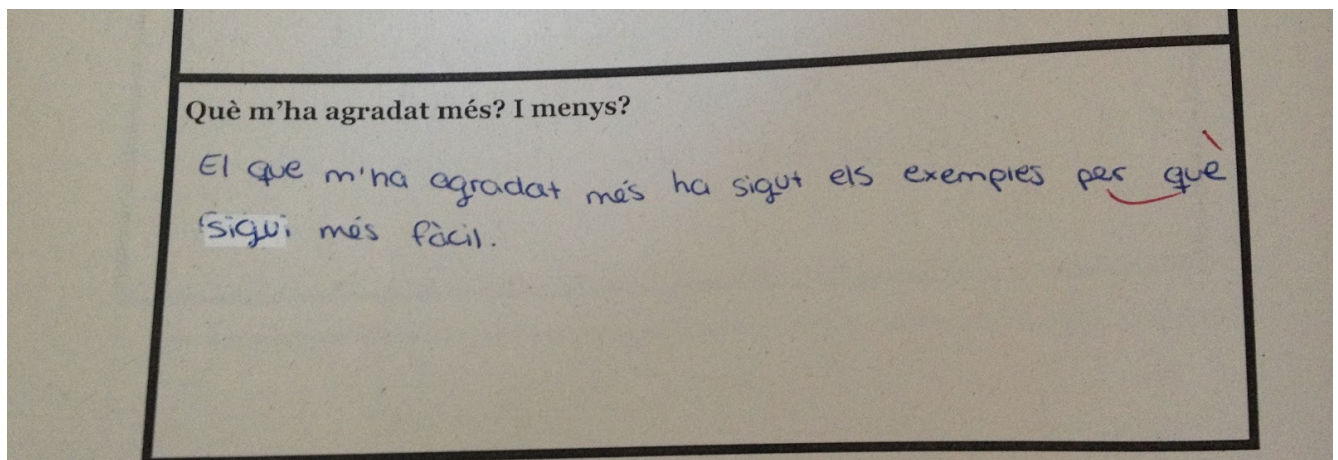 Què m'ha agradat més? I menys?
El que m'ha agradat més ha sigut els exemples per què
sigui més fàcil.